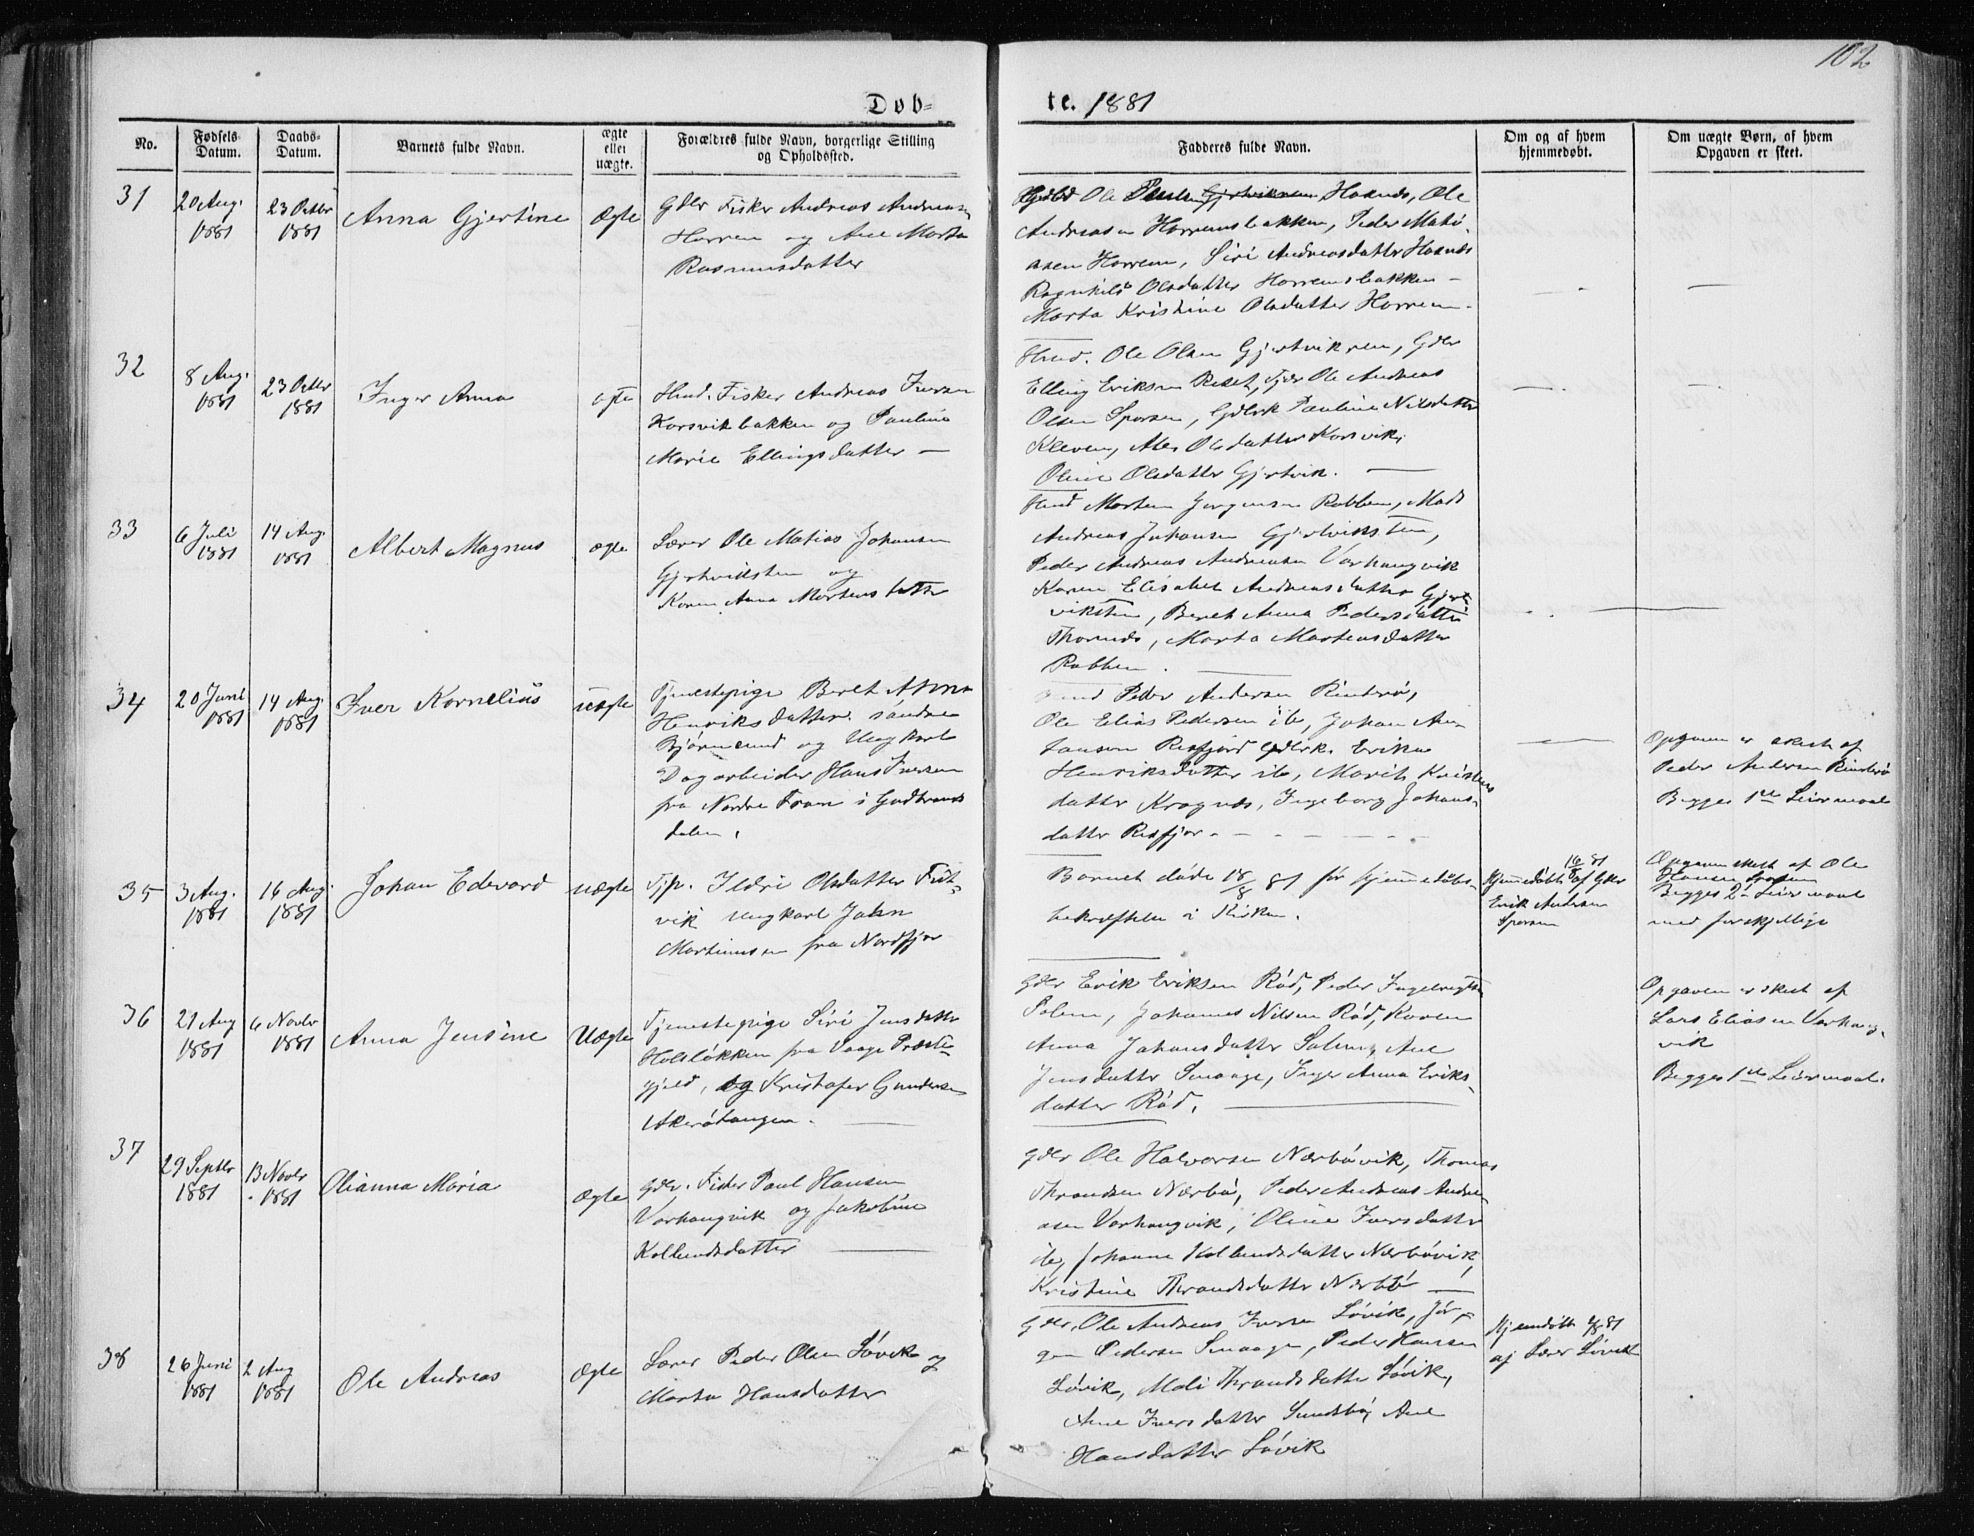 102
Døb-
te. 1881
No.
Fødsels Datum.
Daabs-Datum.
Barnets fulde Navn.
ægte eller uægte.
Forældres fulde Navn, borgerlige Stilling og Opholdssted.
Fadderes fulde Navn.
Om og af hvem hjemmedøbt.
Om uægte Børn, af hvem Opgaven er skeet.
31
20 Aug. 1881
23 Octbr 1881
Anna Gjertine
Ægte
Gdbr Fisker Andreas Andreas-
Harrem og Ane Marta
Rasmusdatter
Ole Hoknæs, Ole
Andreasen Harremsbakken, Peder Mati-
asen Harrem, Siri Andreasdatter Hoknæs
Ragnhild Olsdatter Harremsbakken –
Marta Kristine Olsdatter Harrem.
32
8 Aug. 1881
23 Octbr 1881
Inger Anna
ægte
Husmd. Fisker Andreas Iversen
Korsvikbakken og Pauline
Marie Ellingsdatter –
Husmd. Ole Olsen Gjertvik, Gdbr
Elling Eriksen Reset, Ole Andreas
Olsen Sporsem, Pauline Nilsdatter
Kleven, Olsdatter Korsvik,
Oline Olsdatter Gjertvik. –
33
6 Juli 1881
14 Aug. 1881
Albert Magnus
ægte
Lærer Ole Matias Johansen
Gjertviksten og
Karen Anna Mortensdatter
Morten Jørgensen Rabben, Mads
Andreas Johansen Gjertviksten,
Peder Andreas Andreasen Varhaugvik
Karen Elisabet Andreasdatter Gjert-
viksten, Beret Anna Pedersdatter
Thornæs, Marta Mortensdatter
Rabben.
34
20 Juni 1881
14 Aug. 1881
Iver Kornelius
uægte
Tjenestepige Beret Anna
Henriksdatter Søndre
Bjørnsund og Ungkarl
Dagarbeider Hans Iversen
fra Nordre Fron i Gudbrands
dalen.
Peder Andersen Rindarø,
Ole Elias Pedersen ib, Johan An-
tonsen Resfjord Gdbrk. Erika
Henriksdatter ib, Marit Kristens
datter Kragnæs, Ingeborg Johans-
datter Resfjor.
Opgaven er skeet af
Peder Andersen Rindarø
Begges 1ste Leiermaal
35
3 Aug. 1881
16 Aug. 1881
Johan Edvard
uægte
Tjp. Ildri Olsdatter
vik Ungkarl John
Martinussen fra Nordfjor
Barnet døde 18/8 81 før hjemmedaabs-
bekræftelse i Kirken.
Hjemmedøbt 16/8 81 af Gdbr
Erik Andersen
Sporsem
Opgaven skeet af Ole
Hansen
Begges 2det Leiermaal
med forskjellige
36
21 Aug 1881
6 Novbr 1881
Anna Jensine
Uægte
Tjenestepige Siri Jensdatter
Holsløkken fra Vaage Præste-
gjeld, og Kristofer Gundersen
Akerøtangen.
Gdbr Erik Eriksen Rød, Peder Ingebrigtsen
Solem, Johannes Nilsen Rød, Karen
Anna Johansdatter Solem, Ane
Jensdatter Smaage, Inger Anna Eriks-
datter Rød.
Opgaven er skeet af
Lars Eliasen Varhaug-
vik
Begges 1ste Leiermaal.
37
29 Septbr 1881
13 Novbr 1881
Olianna Maria
Ægte
Gdbr. Fisker Paul Hansen
Varhaugvik og Jakobine
Kollundsdatter
Gdbr Ole Halvorsen Nerbøvik, Thomas
Throndsen Nærbø, Peder Andreas Andre-
asen Varhaugvik, Oline Iversdatter
ib, Johanne Kollundsdatter Nærbøvik,
Kristine Throndsdatter Nærbø
38
26 Juni 1881
2 Aug 1881
Ole Andreas
Ægte
Lærer Peder Olsen Løvik og
Marta Hansdatter
Gdbr, Ole Andreas Iversen Løvik, Jør-
gen Pedersen Smaage, Peder Hansen
Løvik, Mali Throndsdatter Løvik,
Ane Iversdatter Sundsbø, Ane
Hansdatter Løvik
Hjemmedøbt 2/8 81
af Lærer Løvik